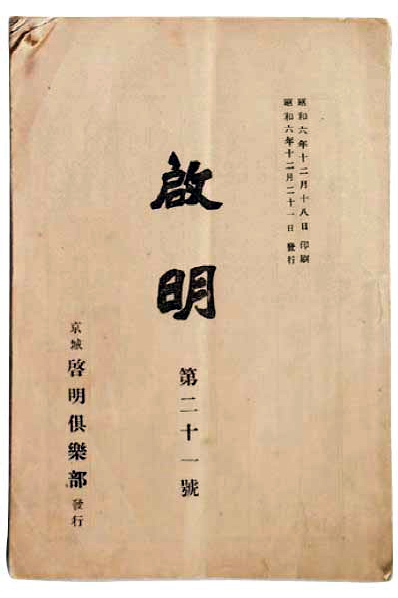 昭和六年十二月十八日 印刷
昭和六年十二月二十一日 發行
啟明
第二十一號
京城 啓明俱樂部 發行